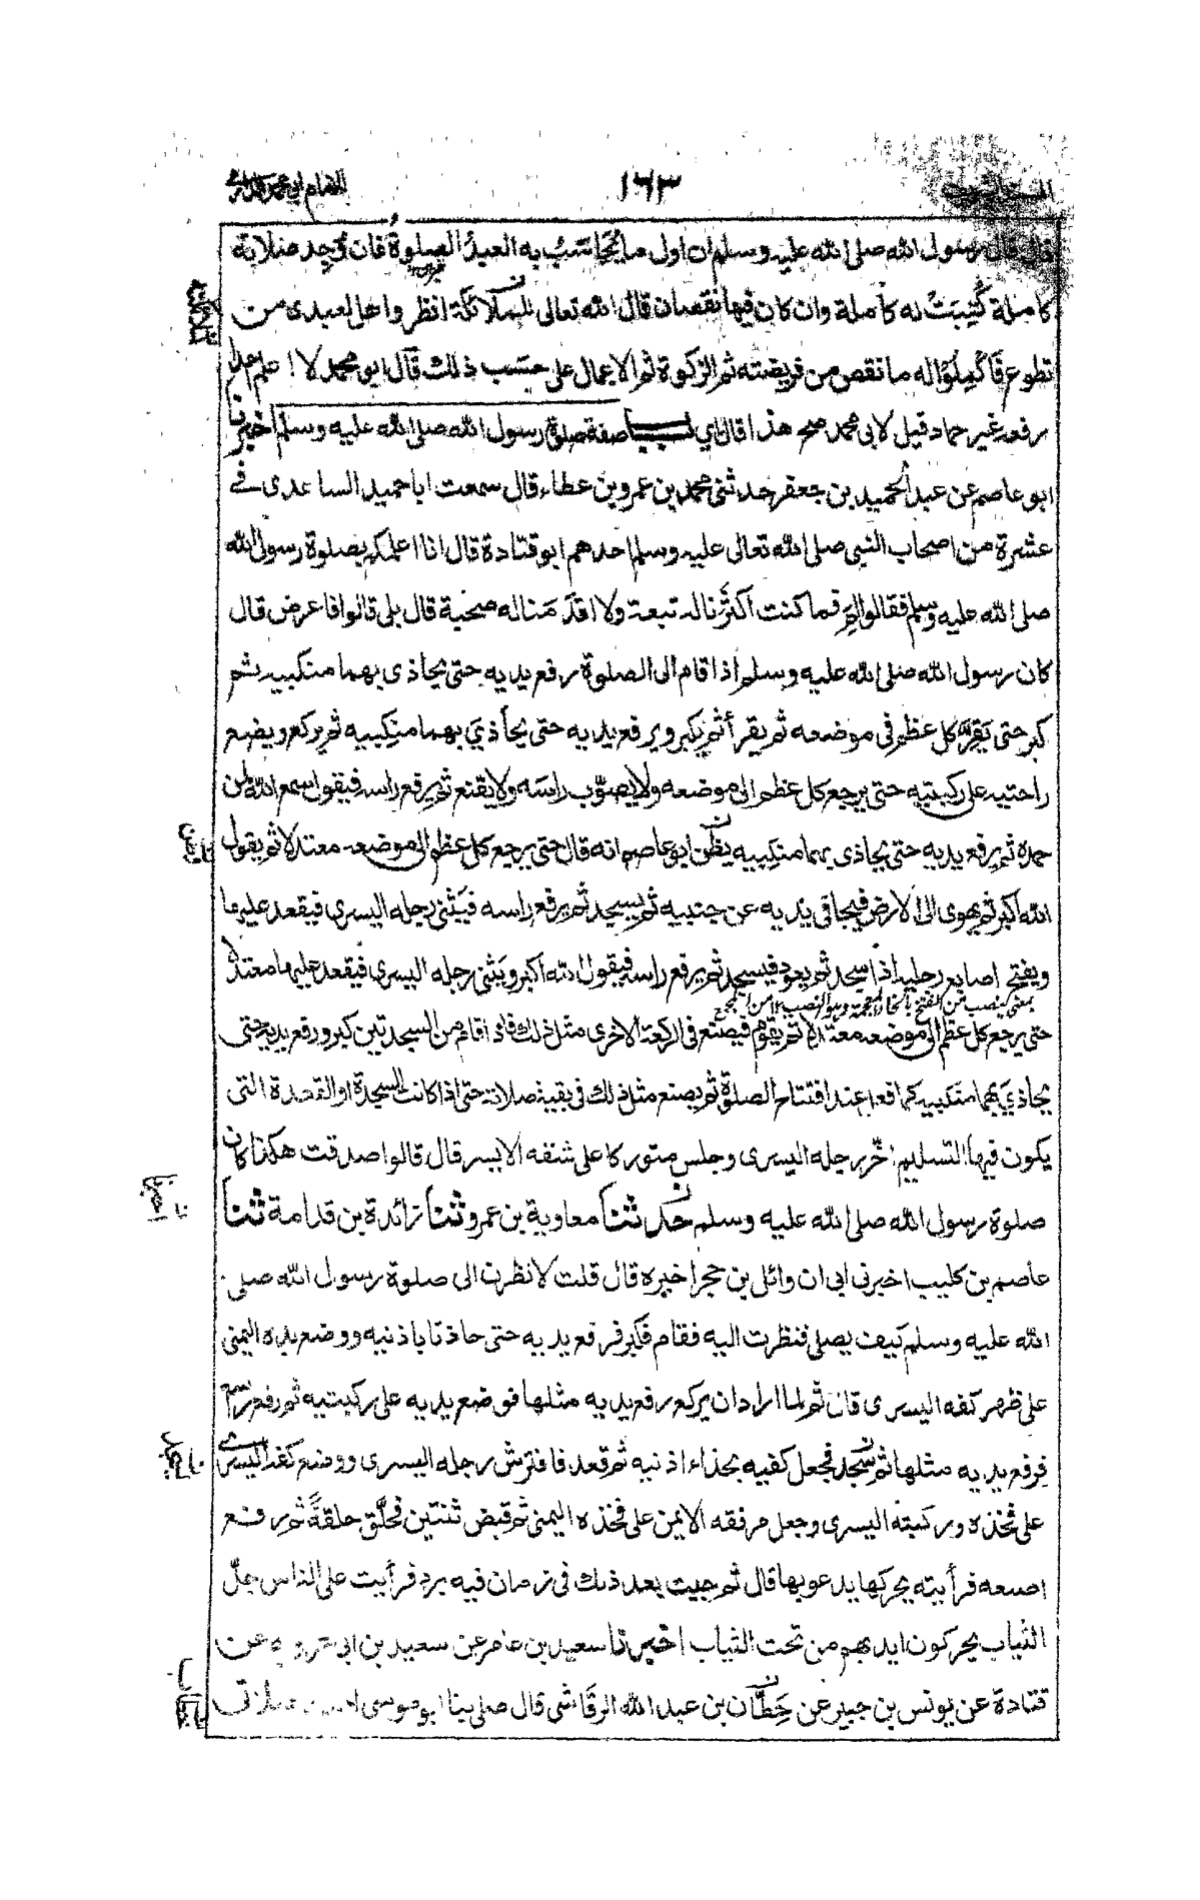 ١٦٣
قال قال رسول الله صلى الله عليه وسلم ان اول ما يحاسب به العبد الصلوة فان وجد صلاته
كاملة كُتِبَتْ له كاملة وان كان فيها نقصان قال الله تعالى للملائكة انظروا هل لعبدى من
تطوع فَاَكْمِلُوا له ما نقص من فريضته ثم الزكوة ثم الاعمال على حَسَب ذلك قال ابو محمد لا اعلم احدا
رفعه غير حماد قيل لابى محمد صح هذا قال اى باب صفة صلوة رسول الله صلى الله عليه وسلم اخبرنا
ابو عاصم عن عبد الحميد بن جعفر حدثنى محمد بن عمرو بن عطاء قال سمعت ابا حميد الساعدى فى
عشرة من اصحاب النبى صلى الله تعالى عليه وسلم احدهم ابو قتادة قال انا اعلمكم بصلوة رسول الله
صلى الله عليه وسلم فقالوا لم فما كنت اكثرنا له تبعة ولا اقدمنا له صحبة قال بلى قالوا فاعرض قال
كان رسول الله صلى الله عليه وسلم اذا قام الى الصلوة رفع يديه حتى يحاذى بهما منكبيه ثم
كبر حتى يَقِرَّ كل عظم فى موضعه ثم يقرأ ثم يكبر ويرفع يديه حتى يحاذىَ بهما منكِبيه ثم يركع ويضع
راحتيه على ركبتيه حتى يرجع كل عظم الى موضعه ولا يصوّب راسَه ولا يقنع ثم يرفع راسه فيقول سمع الله لمن
حمده ثم يرفع يديه حتى يحاذى بهما منكبيه يظن ابو عاصم انه قال حتى يرجع كل عظم الى موضعه معتدلا ثم يقول
الله اكبر ثم يهوى الى الارض فيجافى يديه عن جنبيه ثم يسجد ثم يرفع راسه فيَثنى رجله اليسرى فيقعد عليها
ويفتخ اصابع رجليه اذا سجد ثم يعود فيسجد ثم يرفع راسه فيقول الله اكبر ويَثنى رجله اليسرى فيقعد عليها معتدلا
حتى يرجع كل عظم الى موضعه معتدلا ثم يقوم فيصنع فى الركعة الاخرى مثل ذلك فاذا قام من السجدتين كبر ورفع يديه حتى
يحاذىَ بهما منكبيه كما فعل عند افتتاح الصلوة ثم يصنع مثل ذلك فى بقية صلاته حتى اذا كانت السجدة او القعدة التى
يكون فيها التسليم اخّر رجله اليسرى وجلس متوركا على شقه الايسر قال قالوا صدقت هكذا كان
صلوة رسول الله صلى الله عليه وسلم حدثنا معاوية بن عمرو ثنا زائدة بن قدامة ثنا
عاصم بن كليب اخبرنى ابى ان وائل بن حجر اخبره قال قلت لانظرن الى صلوة رسول الله صلى
الله عليه وسلم كيف يصلى فنظرت اليه فقام فكبر فرفع يديه حتى حاذتا باذنيه ووضع يده اليمنى
على ظهر كفه اليسرى قال ثم لما اراد ان يركع رفع يديه مثلها فوضع يديه على ركبتيه ثم رفع راسه
فرفع يديه مثلها ثم سجد فجعل كفيه بحذاء اذنيه ثم قعد فافترش رجله اليسرى ووضع كفه اليسرى
على فخذه وركبته اليسرى وجعل مرفقه الايمن على فخذه اليمنى ثم قبض ثنتين فحلّق حلقةً ثم رفع
اصبعه فرأيته يحركها يدعو بها قال ثم جئت بعد ذلك فى زمان فيه برد فرأيت على الناس جلّ
الثياب يحركون ايديهم من تحت الثياب اخبرنا سعيد بن عامر عن سعيد بن ابى عروبة عن
قتادة عن يونس بن جبير عن حِطَّان بن عبد الله الرقاشى قال صلى بنا ابو موسى